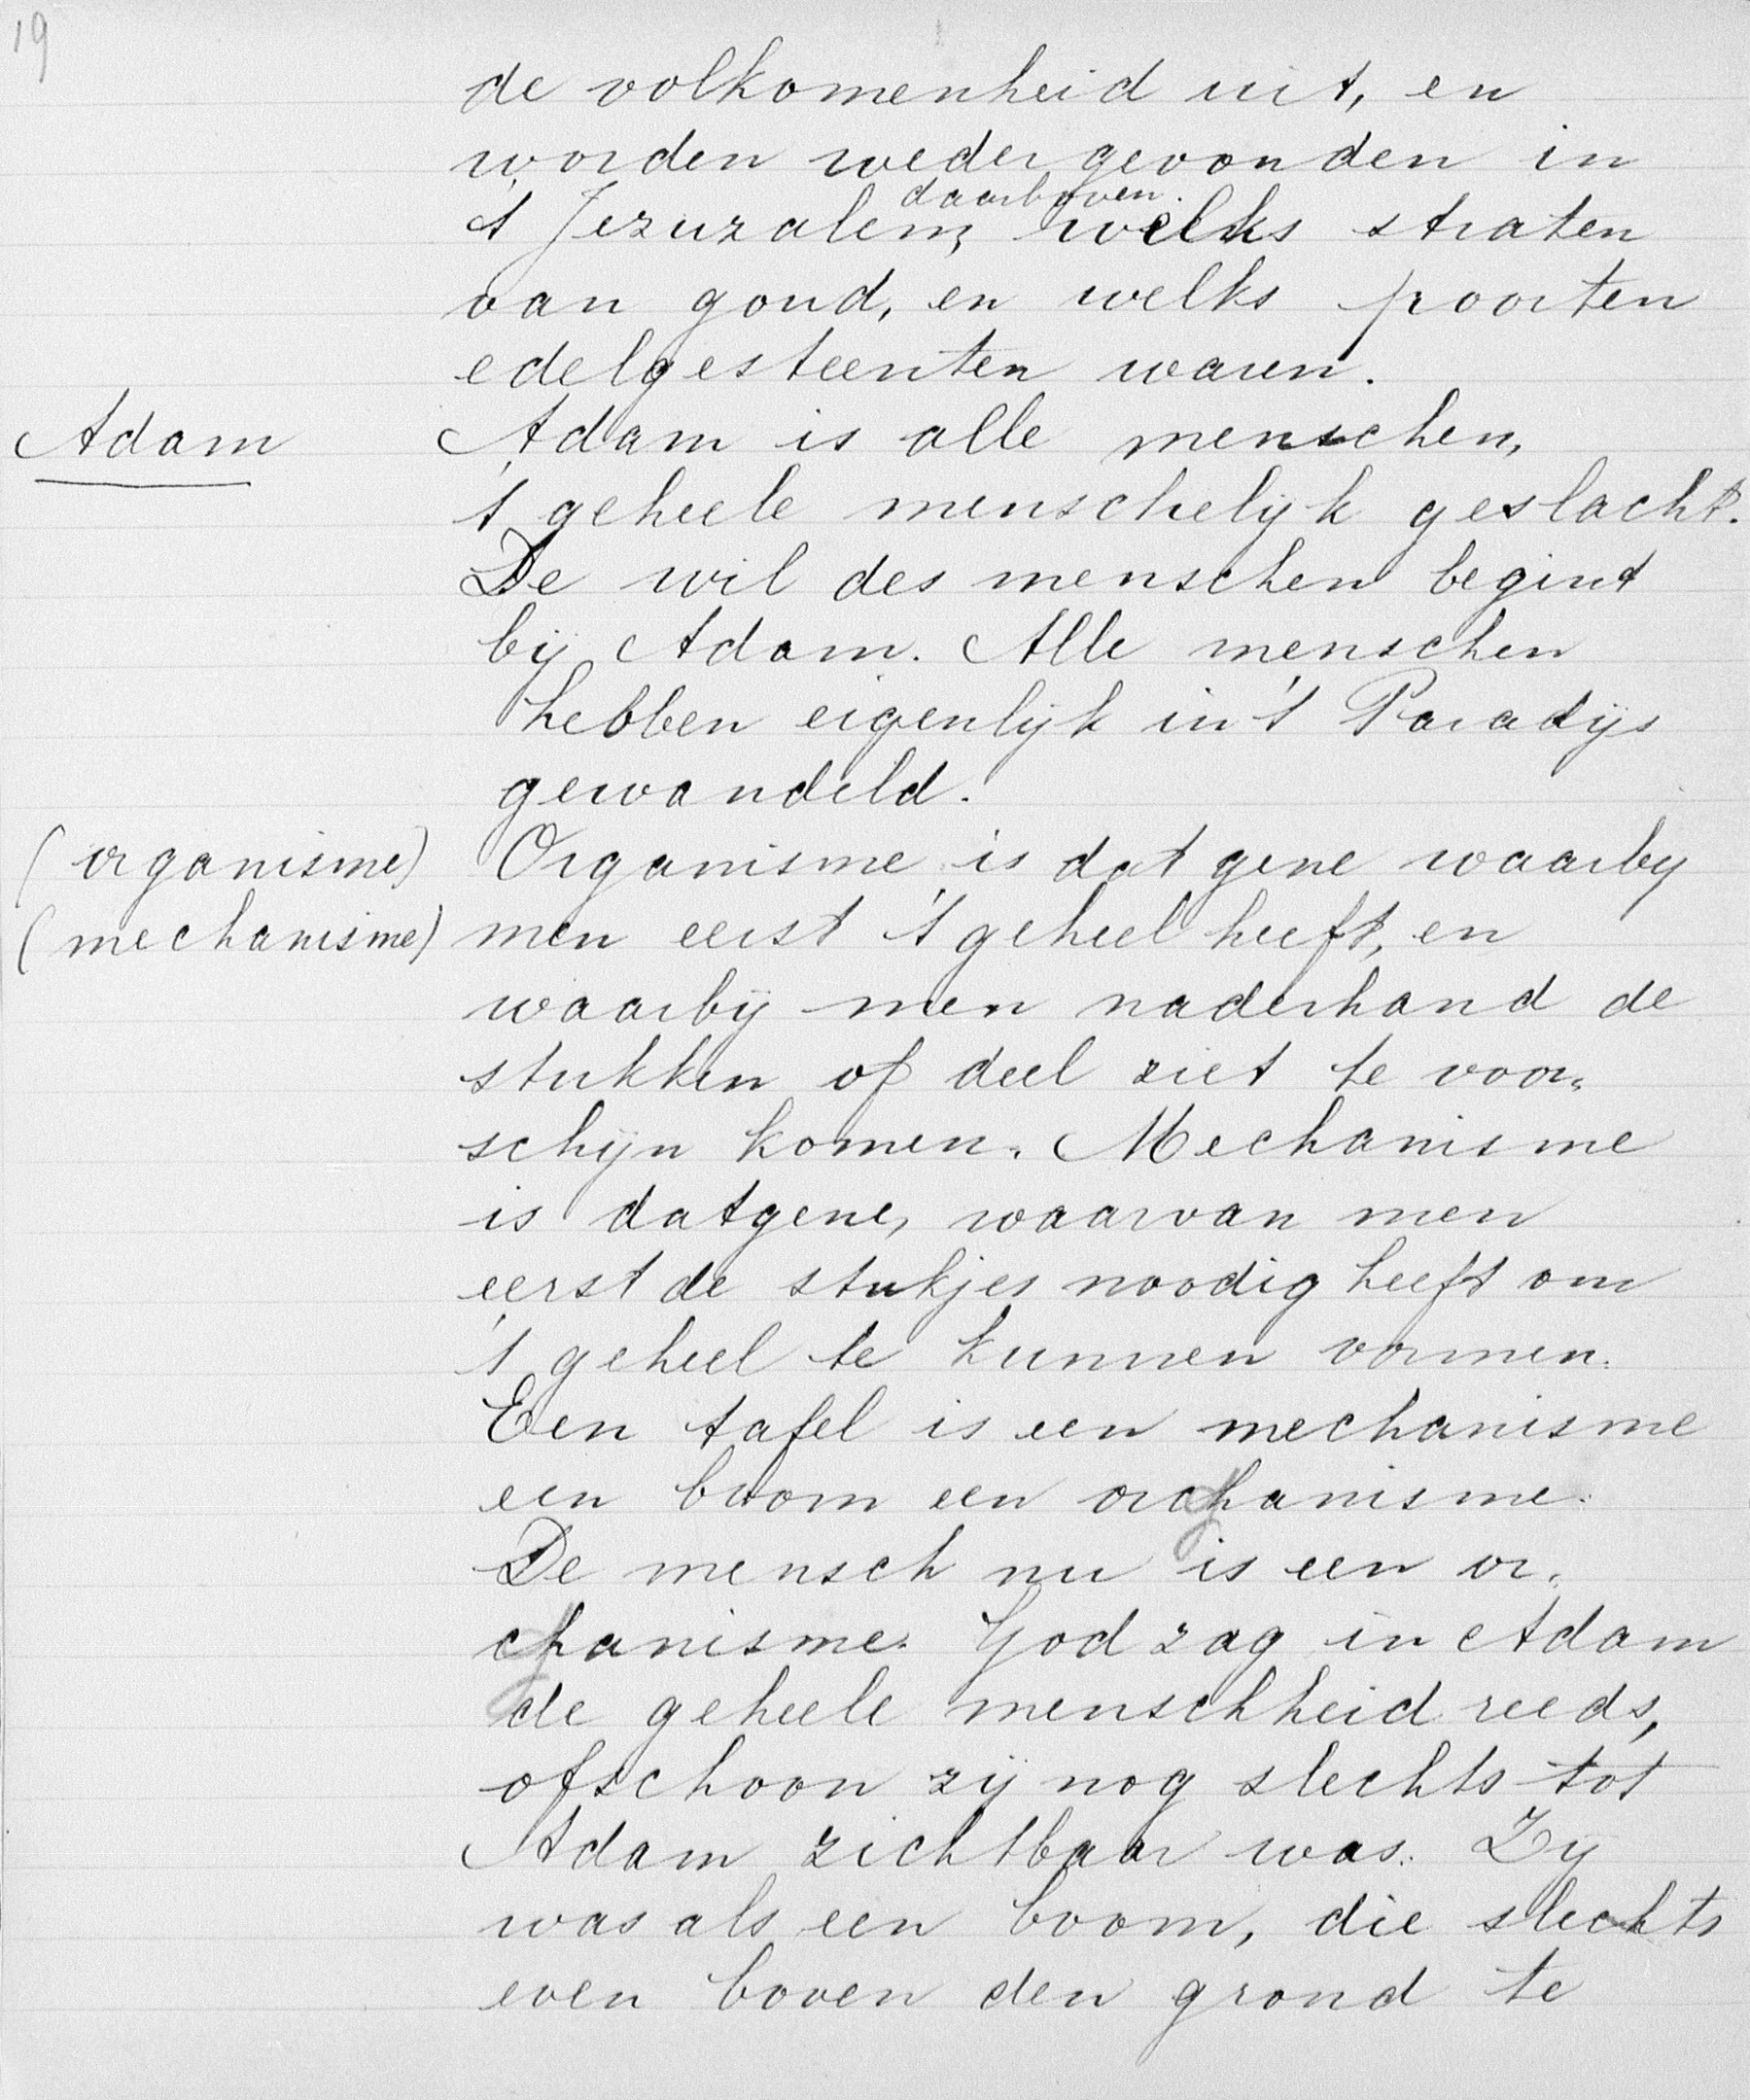 19
de volkomenheid uit, en
worden weder gevonden in
daarboven.
't Jezuzalem, welks straten
van goud, en welks poorten
edelgesteenten waren.
Adam
Adam is alle menschen,
't geheele menschelijk geslacht.
De wil des menschen begint
bij Adam. Alle menschen
hebben eigenlijk in 't Paradijs
gewandeld.
(organisme)
Organisme is dat gene waarby
(mechanisme)
men eerst 't geheel heeft, en
waarbij men naderhand de
stukken of deel ziet te voor=
schijn komen. Mechanisme
is datgene, waarvan men
eerst de stukjes noodig heeft om
't geheel te kunnen vormen.
Een tafel is een mechanisme
een boom een organisme.
De mensch nu is een or=
ganisme. God zag in Adam
de geheele menschheid reeds,
ofschoon zij nog slechts tot
Adam zichtbaar was. Zij
was als een boom, die slechts
even boven den grond te